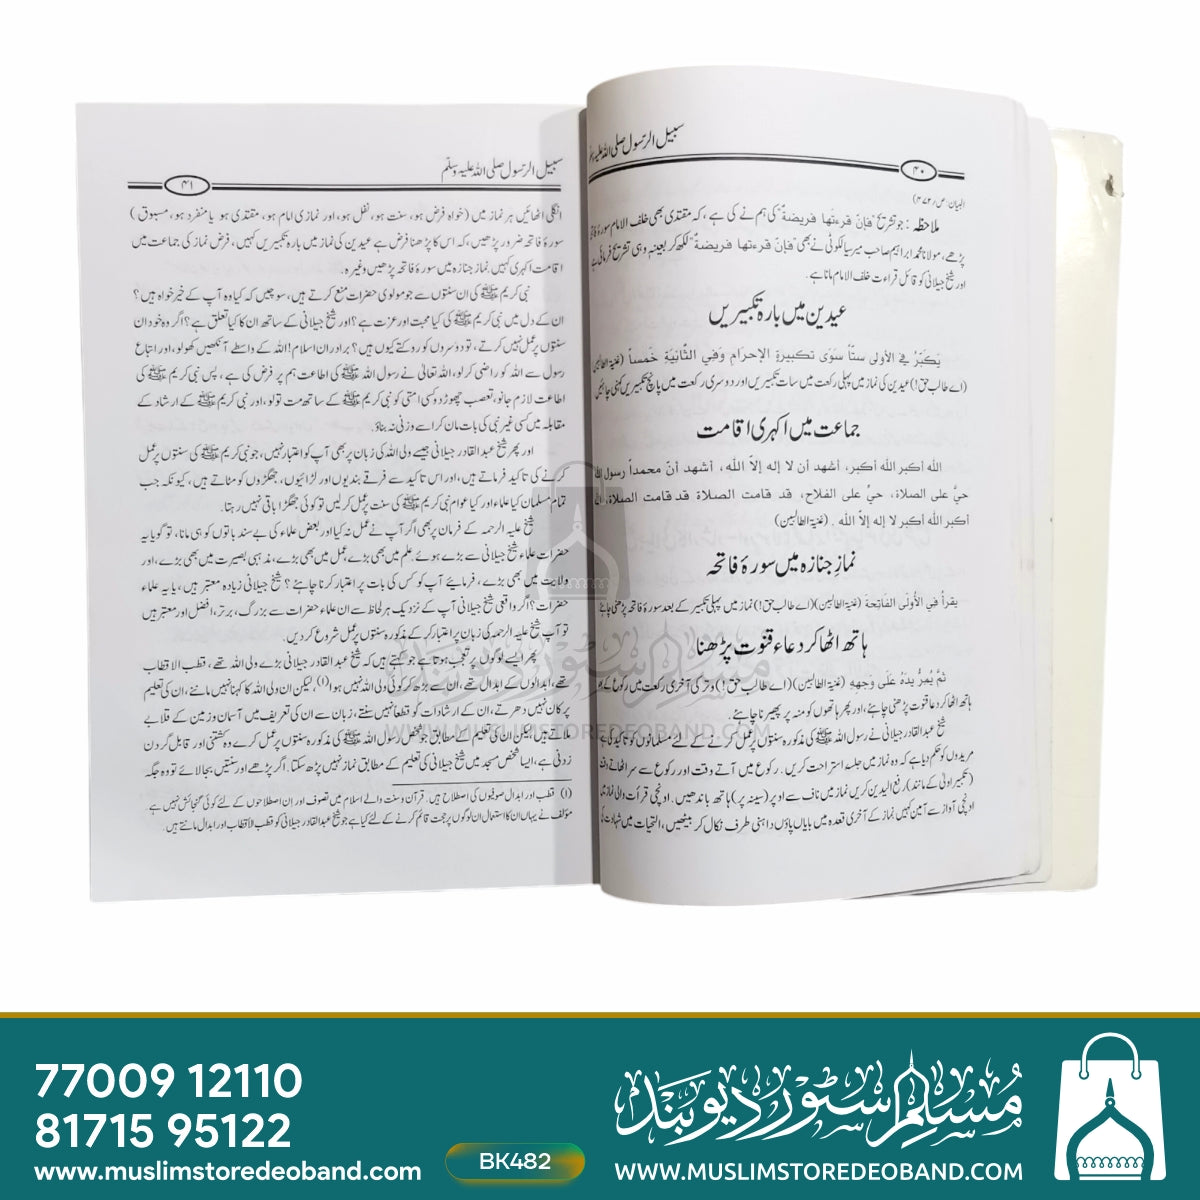 سبیل الرسول صلی اللہ علیہ وسلم
۴۰
البیان:ص/۴۷۳)
ملاحظہ : جو تشریح "فإنّ قرءتها فريضةٌ" کی ہم نے کی ہے، کہ مقتدی بھی خلف الامام سورۂ فاتحہ
پڑھے، مولانا محمد ابراہیم صاحب میر سیالکوٹی نے بھی "فإنّ قرءتها فريضةٌ" لکھ کر بعینہ وہی تشریح فرمائی ہے
اور شیخ جیلانی کو قائل قراءت خلف الامام مانا ہے۔
عیدین میں بارہ تکبیریں
يُكَبِّرُ في الأولى ستاً سوى تكبيرة الإحرام وَفي الثّانيَةِ خَمساً (غنیۃ الطالبین)
(اے طالب حق!) عیدین کی نماز میں پہلی رکعت میں سات تکبیریں اور دوسری رکعت میں پانچ تکبیریں کہنی چاہئیں
جماعت میں اکہری اقامت
الله أكبر الله أكبر، أشهد أن لا إله إلاّ الله، أشهد أنّ محمداً رسول الله
حيّ على الصلاة، حيّ على الفلاح، قد قامت الصلاة قد قامت الصلاة، الله
أكبر الله أكبر لا إله إلاّ الله . (غنیۃ الطالبین)
نمازِ جنازہ میں سورۂ فاتحہ
يقرأُ في الأُولَى الفَاتِحَةَ (غنیۃ الطالبین) (اے طالب حق!) نماز میں پہلی تکبیر کے بعد سورۂ فاتحہ پڑھنی چاہئے
ہاتھ اٹھا کر دعاء قنوت پڑھنا
ثمَّ يُمِرُّ يدَهُ عَلَى وَجهِهِ (غنیۃ الطالبین) (اے طالب حق!) وتر کی آخری رکعت میں رکوع کے
ہاتھ اٹھا کر دعا قنوت پڑھنی چاہئے، اور پھر ہاتھوں کو منہ پر پھیرنا چاہئے۔
شیخ عبدالقادر جیلانی نے رسول اللہ ﷺ کی مذکورہ سنتوں پر عمل کرنے کے لئے مسلمانوں کو تاکید کی ہے
مریدوں کو حکم دیا ہے کہ وہ نماز میں جلسہ استراحت کریں۔ رکوع میں آتے وقت اور رکوع سے سر اٹھاتے وقت
(تکبیر اولیٰ کے مانند) رفع الیدین کریں نماز میں ناف سے اوپر (سینہ پر) ہاتھ باندھیں۔ اونچی قرأت والی نماز
اونچی آواز سے آمین کہیں نماز کے آخری قعدہ میں بایاں پاؤں داہنی طرف نکال کر بیٹھیں، التحیات میں شہادت
سبیل الرسول صلی اللہ علیہ وسلم
۴۱
انگلی اٹھائیں ہر نماز میں (خواہ فرض ہو، سنت ہو، نفل ہو، اور نمازی امام ہو، مقتدی ہو یا منفرد ہو، مسبوق)
سورۂ فاتحہ ضرور پڑھیں، کہ اس کا پڑھنا فرض ہے عیدین کی نماز میں بارہ تکبیریں کہیں، فرض نماز کی جماعت میں
اقامت اکہری کہیں، نماز جنازہ میں سورۂ فاتحہ پڑھیں وغیرہ۔
نبی کریم ﷺ کی ان سنتوں سے جو مولوی حضرات منع کرتے ہیں، سوچیں کہ کیا وہ آپ کے خیر خواہ ہیں؟
ان کے دل میں نبی کریم ﷺ کی کیا محبت اور عزت ہے؟ اور شیخ جیلانی کے ساتھ ان کا کیا تعلق ہے؟ اگر وہ خود ان
سنتوں پر عمل نہیں کرتے، تو دوسروں کو روکتے کیوں ہیں؟ برادرانِ اسلام! اللہ کے واسطے آنکھیں کھولو، اور اتباع
رسول سے اللہ کو راضی کر لو، اللہ تعالیٰ نے رسول اللہ ﷺ کی اطاعت ہم پر فرض کی ہے، پس نبی کریم ﷺ کی
اطاعت لازم جانو، تعصب چھوڑ دو کسی امتی کو نبی کریم ﷺ کے ساتھ مت تولو، اور نبی کریم ﷺ کے ارشاد کے
مقابلہ میں کسی غیر نبی کی بات مان کر اسے وزنی نہ بناؤ۔
اور پھر شیخ عبدالقادر جیلانی جیسے ولی اللہ کی زبان پر بھی آپ کو اعتبار نہیں، جو نبی کریم ﷺ کی سنتوں پر عمل
کرنے کی تاکید فرماتے ہیں، اور اس تاکید سے فرقے بندیوں اور لڑائیوں، جھگڑوں کو مٹاتے ہیں، کیونکہ جب
تمام مسلمان کیا علماء اور کیا عوام نبی کریم ﷺ کی سنت پر عمل کریں تو کوئی جھگڑا باقی نہیں رہتا۔
شیخ علیہ الرحمہ کے فرمان پر بھی اگر آپ نے عمل نہ کیا اور بعض علماء کی بے سند باتوں کو ہی مانا، تو گویا یہ
حضرات علماء شیخ جیلانی سے بڑے ہوئے، علم میں بھی بڑے، عمل میں بھی بڑے، مذہبی بصیرت میں بھی بڑے،
ولایت میں بھی بڑے، فرمایئے آپ کو کس کی بات پر اعتبار کرنا چاہئے؟ شیخ جیلانی زیادہ معتبر ہیں، یا یہ علماء
حضرات؟ اگر واقعی شیخ جیلانی آپ کے نزدیک ہر لحاظ سے ان علماء حضرات سے بزرگ، برتر، افضل اور معتبر ہیں
تو آپ شیخ علیہ الرحمہ کی زبان پر اعتبار کر کے مذکورہ سنتوں پر عمل شروع کر دیں۔
پھر ایسے لوگوں پر تعجب ہوتا ہے جو کہتے ہیں کہ شیخ عبدالقادر جیلانی بڑے ولی اللہ تھے، قطب الاقطاب
تھے، ابدالوں کے ابدال تھے، ان سے بڑھ کر کوئی ولی اللہ نہیں ہوا(۱)، لیکن ان ولی اللہ کا کہنا نہیں مانتے، ان کی تعلیم
پر کان نہیں دھرتے، ان کے ارشادات کو قطعاً نہیں سنتے، زبان سے ان کی تعریف میں آسمان وزمین کے قلابے
ملاتے ہیں، لیکن ان کی تعلیم کے مطابق جو شخص رسول اللہ ﷺ کی مذکورہ سنتوں پر عمل کرے وہ کشتنی اور قابل گردن
زدنی ہے، ایسا شخص مسجد میں شیخ جیلانی کی تعلیم کے مطابق نماز نہیں پڑھ سکتا۔ اگر پڑھے اور سنتیں بجا لائے تو وہ جگہ
(۱) قطب اور ابدال صوفیوں کی اصطلاح ہیں۔ قرآن و سنت والے اسلام میں تصوف اور ان اصطلاحوں کے لئے کوئی گنجائش نہیں ہے
مؤلف نے یہاں ان کا استعمال ان لوگوں پر حجت قائم کرنے کے لئے کیا ہے جو شیخ عبدالقادر جیلانی کو قطب الاقطاب اور ابدال مانتے ہیں۔
مسلم سٹور دیوبند
WWW.MUSLIMSTOREDEOBAND.COM
77009 12110
81715 95122
www.muslimstoredeoband.com
BK482
مسلم سٹور دیوبند
WWW.MUSLIMSTOREDEOBAND.COM